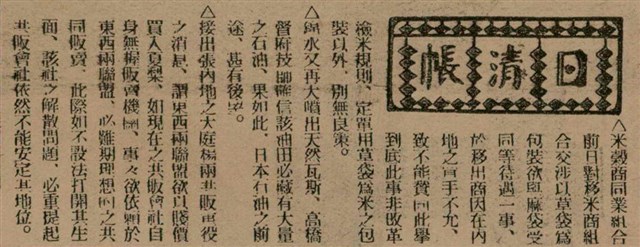 日清帳
△米穀商同業組合
前日對移米商組
合交涉以草袋爲
包裝欲與麻袋受
同等待遇一事、
於移出商因在內
地之買手不允、
致不能贊同此舉
到底此事非改革
檢米規則、定單用草袋爲米之包
裝以外、別無良策。
△錦水又再大噴出天然瓦斯、高橋
督府技師確信該油田必藏有大量
之石油、果如此、日本石油之前
途、甚有後望。
△接出張內地之大庭楊兩共販重役
之消息、謂東西兩聯盟欲以賤價
買入夏製、如現在之共販會社自
身無權販賣機關、事々欲依賴於
東西兩聯盟、必難期理想同之共
同販賣、此際如不設法打開其生
面、該社之解散問題、必重提起
共販會社依然不能安定其地位。